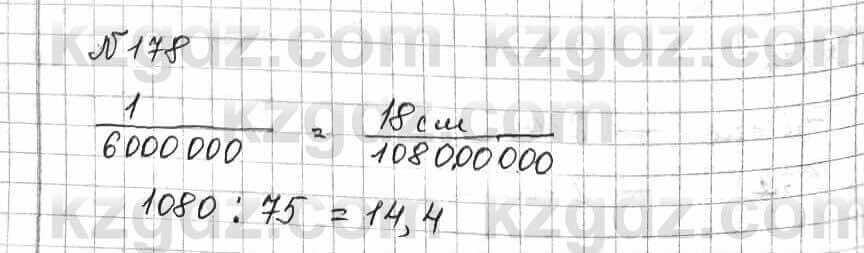 № 178
1/6000 000 = 18 см/108000 000
1080 : 75 = 14,4
kzgdz.com kzgdz.com
kzgdz.com
kzgdz.com kzgdz.com